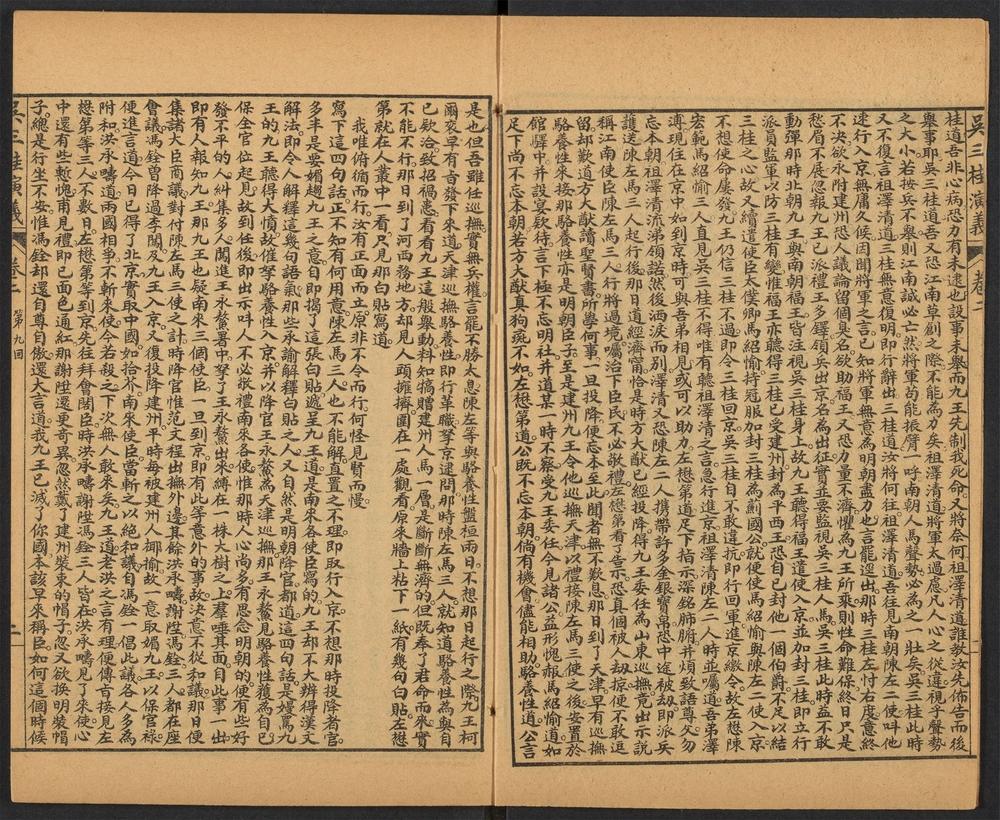 吳三桂演義 卷二 二
桂道吾非心病恐力有未逮也設事未舉而九王先制我死命又將奈何祖澤清道誰教汝先佈告而後
舉事耶吳三桂道吾又恐江南草創之際不能為力矣祖澤清道將軍太過慮凡人心之從違視乎聲勢
之大小若按兵不舉則江南誠必亡然將軍苟能振臂一呼南朝人馬聲勢必為之一壯矣吳三桂此時
又不復言祖澤清道三桂無意復明即行辭出三桂道汝將何往祖澤清道吾往見南朝陳左二使叫他
速行入京無庸久候因聞將軍之言已知將軍無意為明朝盡力也言罷逕出那時三桂左忖右度意終
不決欲永附建州恐人議論留個臭名欲助福王又恐力量不濟懼為九王所乘則性命難保終日只是
愁眉不展忽報九王已派禮王多鐸領兵出京名為出征實並要監視吳三桂人馬吳三桂此時益不敢
動彈那時北朝九王與南朝福王皆注視吳三桂身上故九王聽得福王遣使入京並加封三桂即立行
派員監軍以防三桂有變惟福王亦聽得三桂已受建州封為平西王恐自已封他一個伯爵不足以結
三桂之心故又續遣使臣太僕卿馬紹愉持冠服加封三桂為薊國公就便使馬紹愉與陳左二使入京
不想使命屢發九王仍信三桂不過即令三桂回京吳三桂自不敢違抗即行回軍進京繳令故左懋陳
宏範馬紹愉三人直見吳三桂不得唯有聽祖澤清之言急行進京祖澤清陳左二人時並囑道吾弟澤
溥現住在京中如到京時可與吾弟相見或可以助力左懋第道足下指示深銘肺腑并煩致語尊父勿
忘本朝祖澤清流涕領諾然後洒淚而別澤清又恐陳左二人携帶許多金銀幣帛恐中途被劫即派兵
護送陳左馬三人起行後那日道經濟甯恰是時方大猷已經投降得九王委任為山東巡撫竟出示說
稱江南使臣陳左馬三人行將過境囑治下臣民不必敬禮左懋第看了告示恐真個被人劫掠便不敢逗
留却歎道方大猷讀聖賢書所學何事一旦投降便忘本至此聞者無不歎息那日到了天津早有巡撫
駱養性來接那駱養性亦是明朝臣子王是建州九王令他巡撫天津以禮接陳左馬三使之後安置於
館驛中并設宴欵待言下極不忘明社并道某一時不察受九王委任今見諸公益形愧赧馬紹愉道如
足下尚不忘本朝若方大猷真狗彘不如左懋第道公既不忘本朝倘有機會儘能相助駱養性道公言
是也但吾雖任巡撫實無兵權言罷不勝太息陳左等與駱養性盤桓兩日不想那日起行之際九王柯
爾奕早有旨發下來道天津巡撫駱養性即行革職拏京逮問那時陳左馬三人就知道駱養性為與自
已欵洽致招福患看看九王這般舉動料知犒贈建州人馬一層是斷斷無濟的但既奉了君命而來實
不能不行那日到了河西務地方却見人頭擁擠圍在一處觀看原來牆上粘下一紙有幾句白貼左懋
第就在人叢中一看只見那白貼寫道
我唯俯循而行汝有正而立原非不令而行何怪見賢而慢
寫下這四句話正不知有何用意陳左馬三人也不能解直置之不理即取行入京不想那時投降者官
多半是要媚趨九王之意自即揭了這張白貼遞呈九王道是南來各使臣寫的九王却不大辨得漢文
解法即令人解釋這幾句語氣那些承諭解釋白貼之人又自然是明朝降官都道這四句話是嫚罵九
王的九王聽得大憤故催拏駱養性入京并以降官王永鰲為天津巡撫那王永鰲見駱養性獲為自已
保全官位起見故到任後即出示叫人不必敬禮南來各使惟那時人心尚多有思念明朝的便有些好
發不平的人糾集多人闖進王永鰲署中拏了王永鰲出來縛在一株大樹之上羣唾其面自此事一出
即有人報知九王那九王也疑南來三個使臣一旦到京即有此等意外的事故決意不從和議那日便
集諸大臣商議對付陳左馬三使之計時降官惟范文程出撫外邊其餘洪承疇謝陞馮銓三人都在座
會議馮銓曾降過李闖及九王入京又復投降建州平時每被建州人揶揄故一意取媚九王以保官祿
便進言道今日已得了北京實取中國如拾芥南來使臣當斬之以絕和議自馮銓一倡此議各人多為
附和洪承疇道兩國相爭不斬來使今若殺之下次無人敢來矣九王道老洪之言有理便傳旨接見左
懋第等三人不數日左懋第等到京先往拜會閣臣時洪承疇謝陞馮銓三人皆在洪承疇見了來使心
中還有些慙愧甫見禮即已面色通紅那謝陞還更奇異忽然戴了建州裝束的帽子忽又欲換明裝帽
子總是行坐不安惟馮銓却還自尊自傲還大言道我九王已滅了你國本該早來稱臣如何這個時候
吳三桂演義 卷二 第九回 二